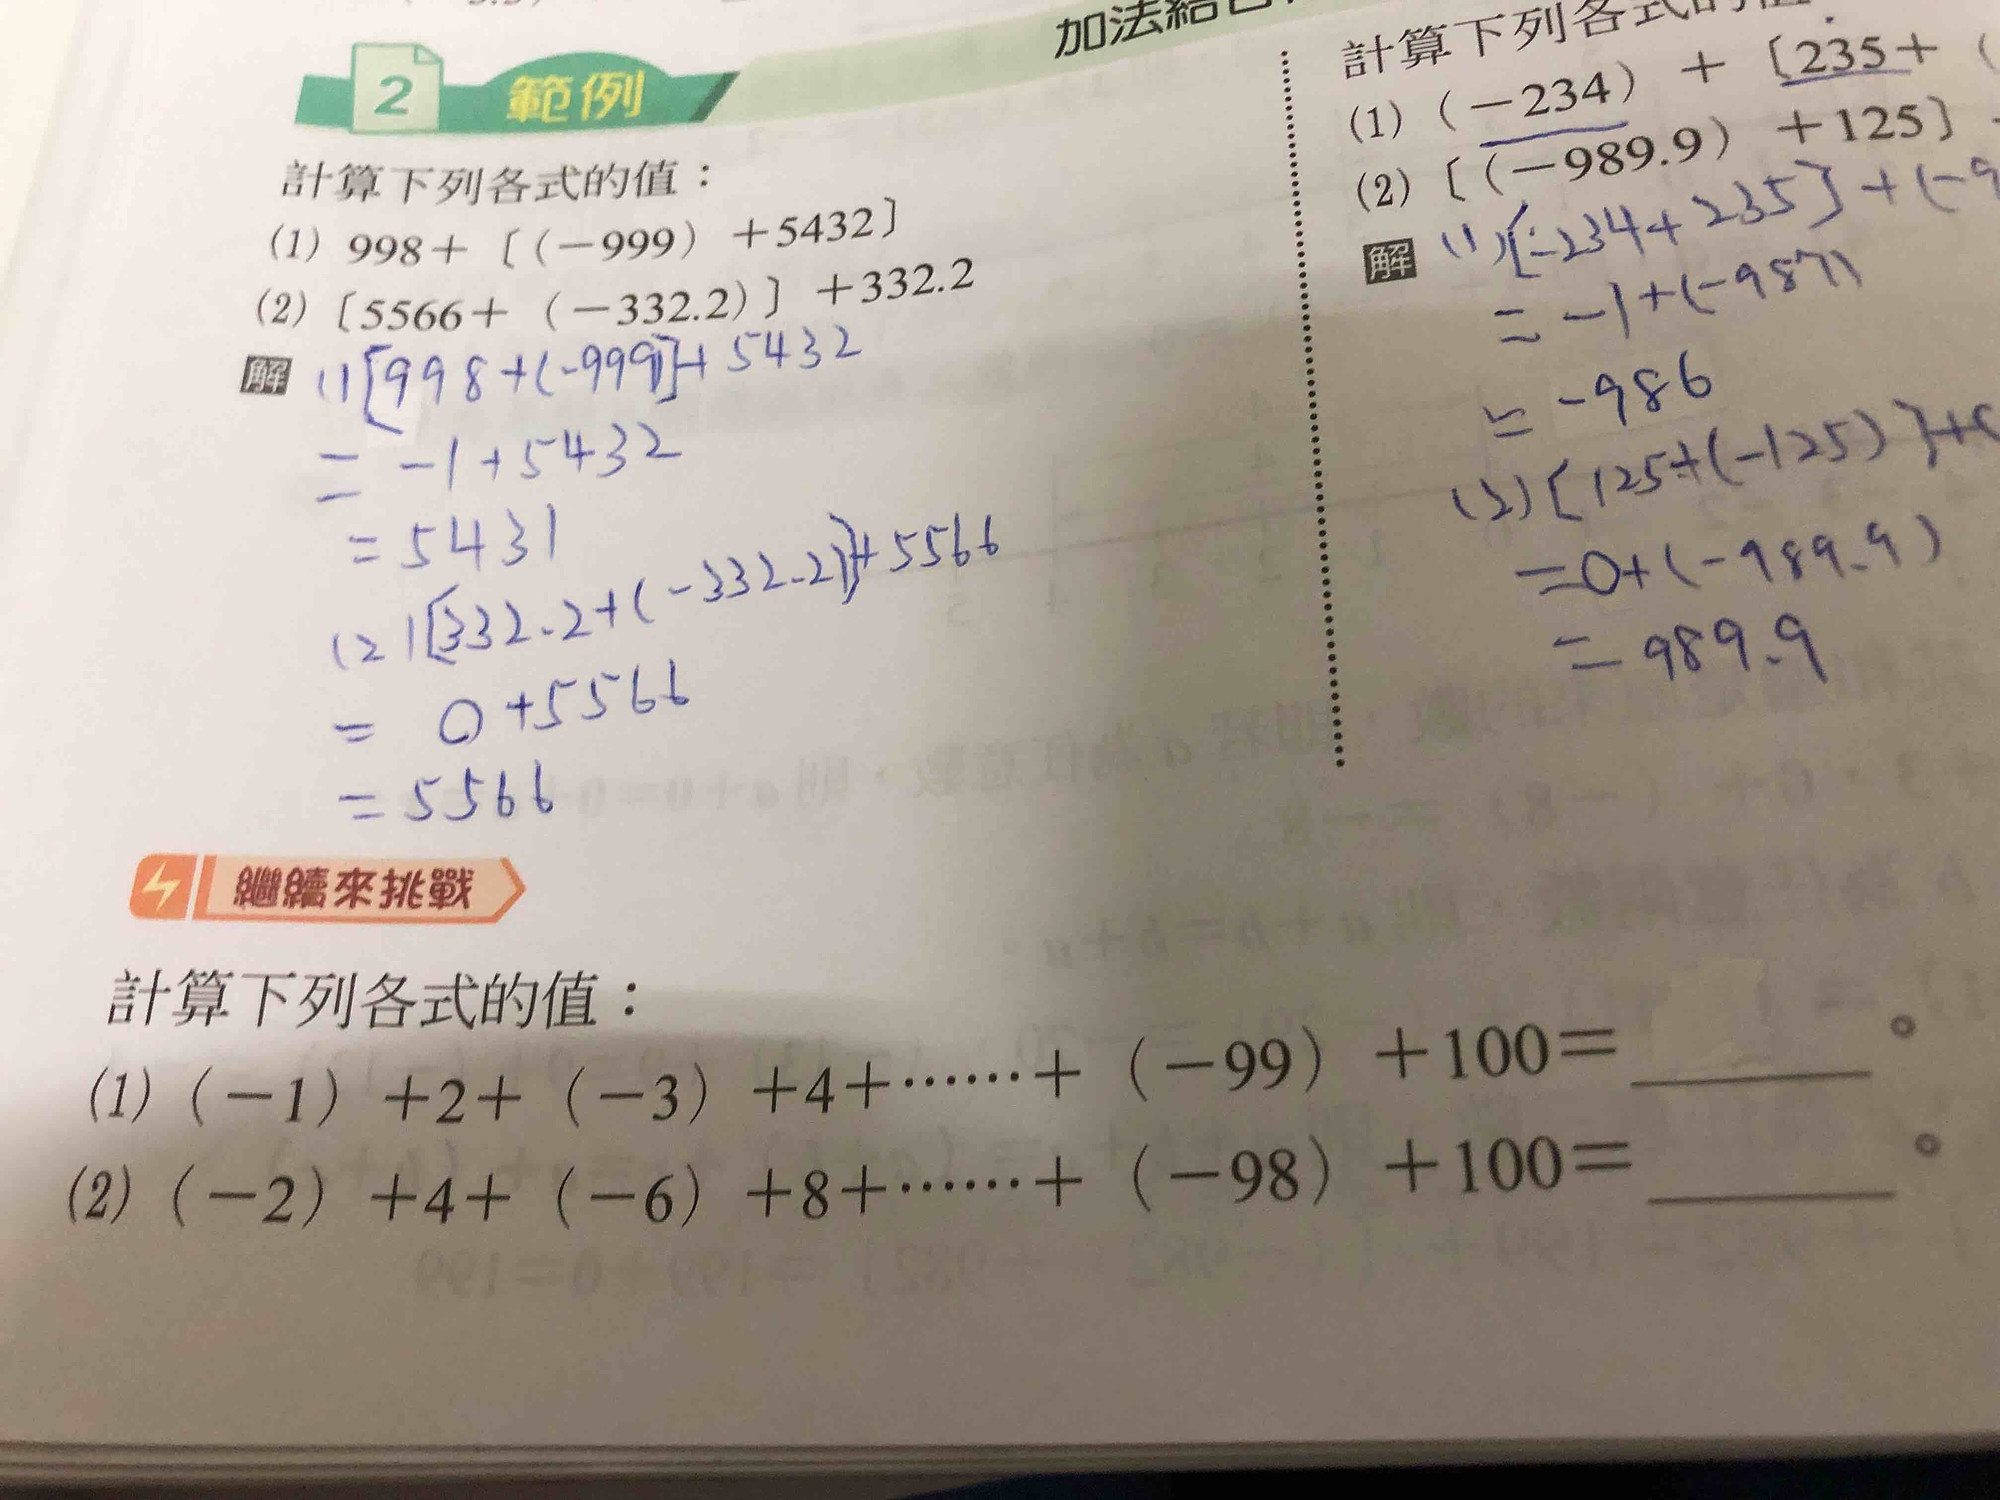 加法結合
2 範例
計算下列各式的值：
(1) 998＋〔(－999)＋5432〕
(2)〔5566＋(－332.2)〕＋332.2
解 (1)[998+(-999)]+5432
= -1+5432
= 5431
(2)[332.2+(-332.2)]+5566
= 0+5566
= 5566
計算下列各式的值：
(1)(－234)＋〔235＋(
(2)〔(－989.9)＋125〕
解 (1)[-234+235]+(-9
= -1+(-987)
= -986
(2)[125+(-125)]+(
=0+(-989.9)
= 989.9
繼續來挑戰
計算下列各式的值：
(1)(－1)＋2＋(－3)＋4＋……＋(－99)＋100＝＿＿＿。
(2)(－2)＋4＋(－6)＋8＋……＋(－98)＋100＝＿＿＿。